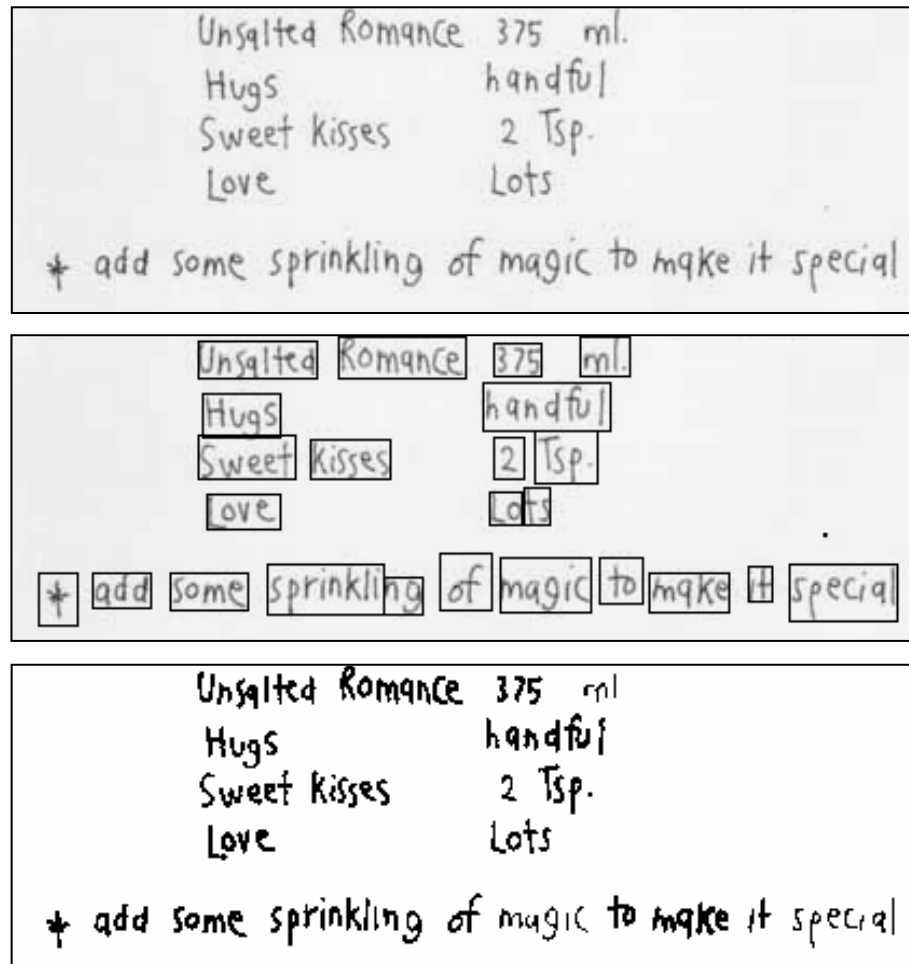 Unsalted Romance 375 ml.
Hugs handful
Sweet kisses 2 Tsp.
Love Lots
* add some sprinkling of magic to make it special
Unsalted Romance 375 ml.
Hugs handful
Sweet kisses 2 Tsp.
Love Lots
* add some sprinkling of magic to make it special
Unsalted Romance 375 ml
Hugs handful
Sweet kisses 2 Tsp.
Love Lots
* add some sprinkling of magic to make it special